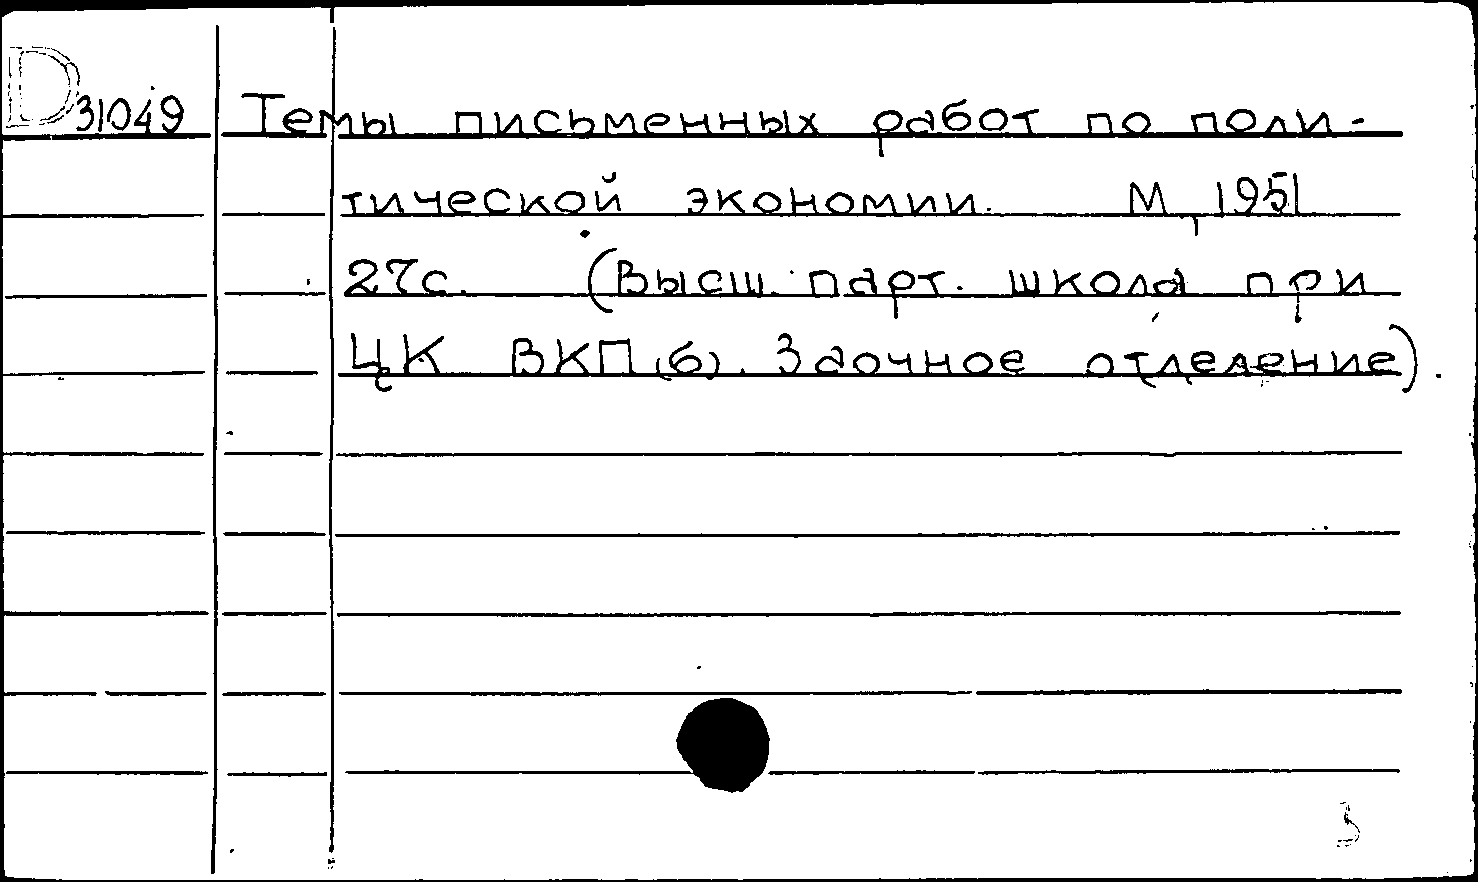 D 31049 Темы письменных работ по поли-
тической экономии. М, 1951
27с. (Высш. парт. школа при
ЦК ВКП(б). Заочное отделение).
3